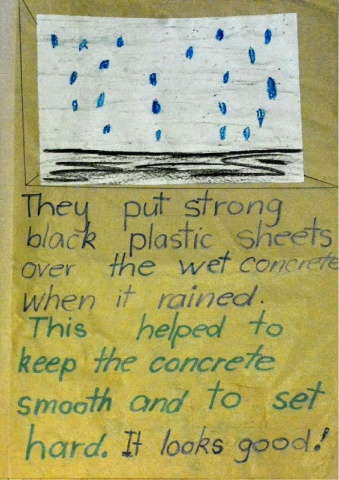 They put strong
black plastic sheets
over the wet concrete
when it rained.
This helped to
keep the concrete
smooth and to set
hard. It looks good!